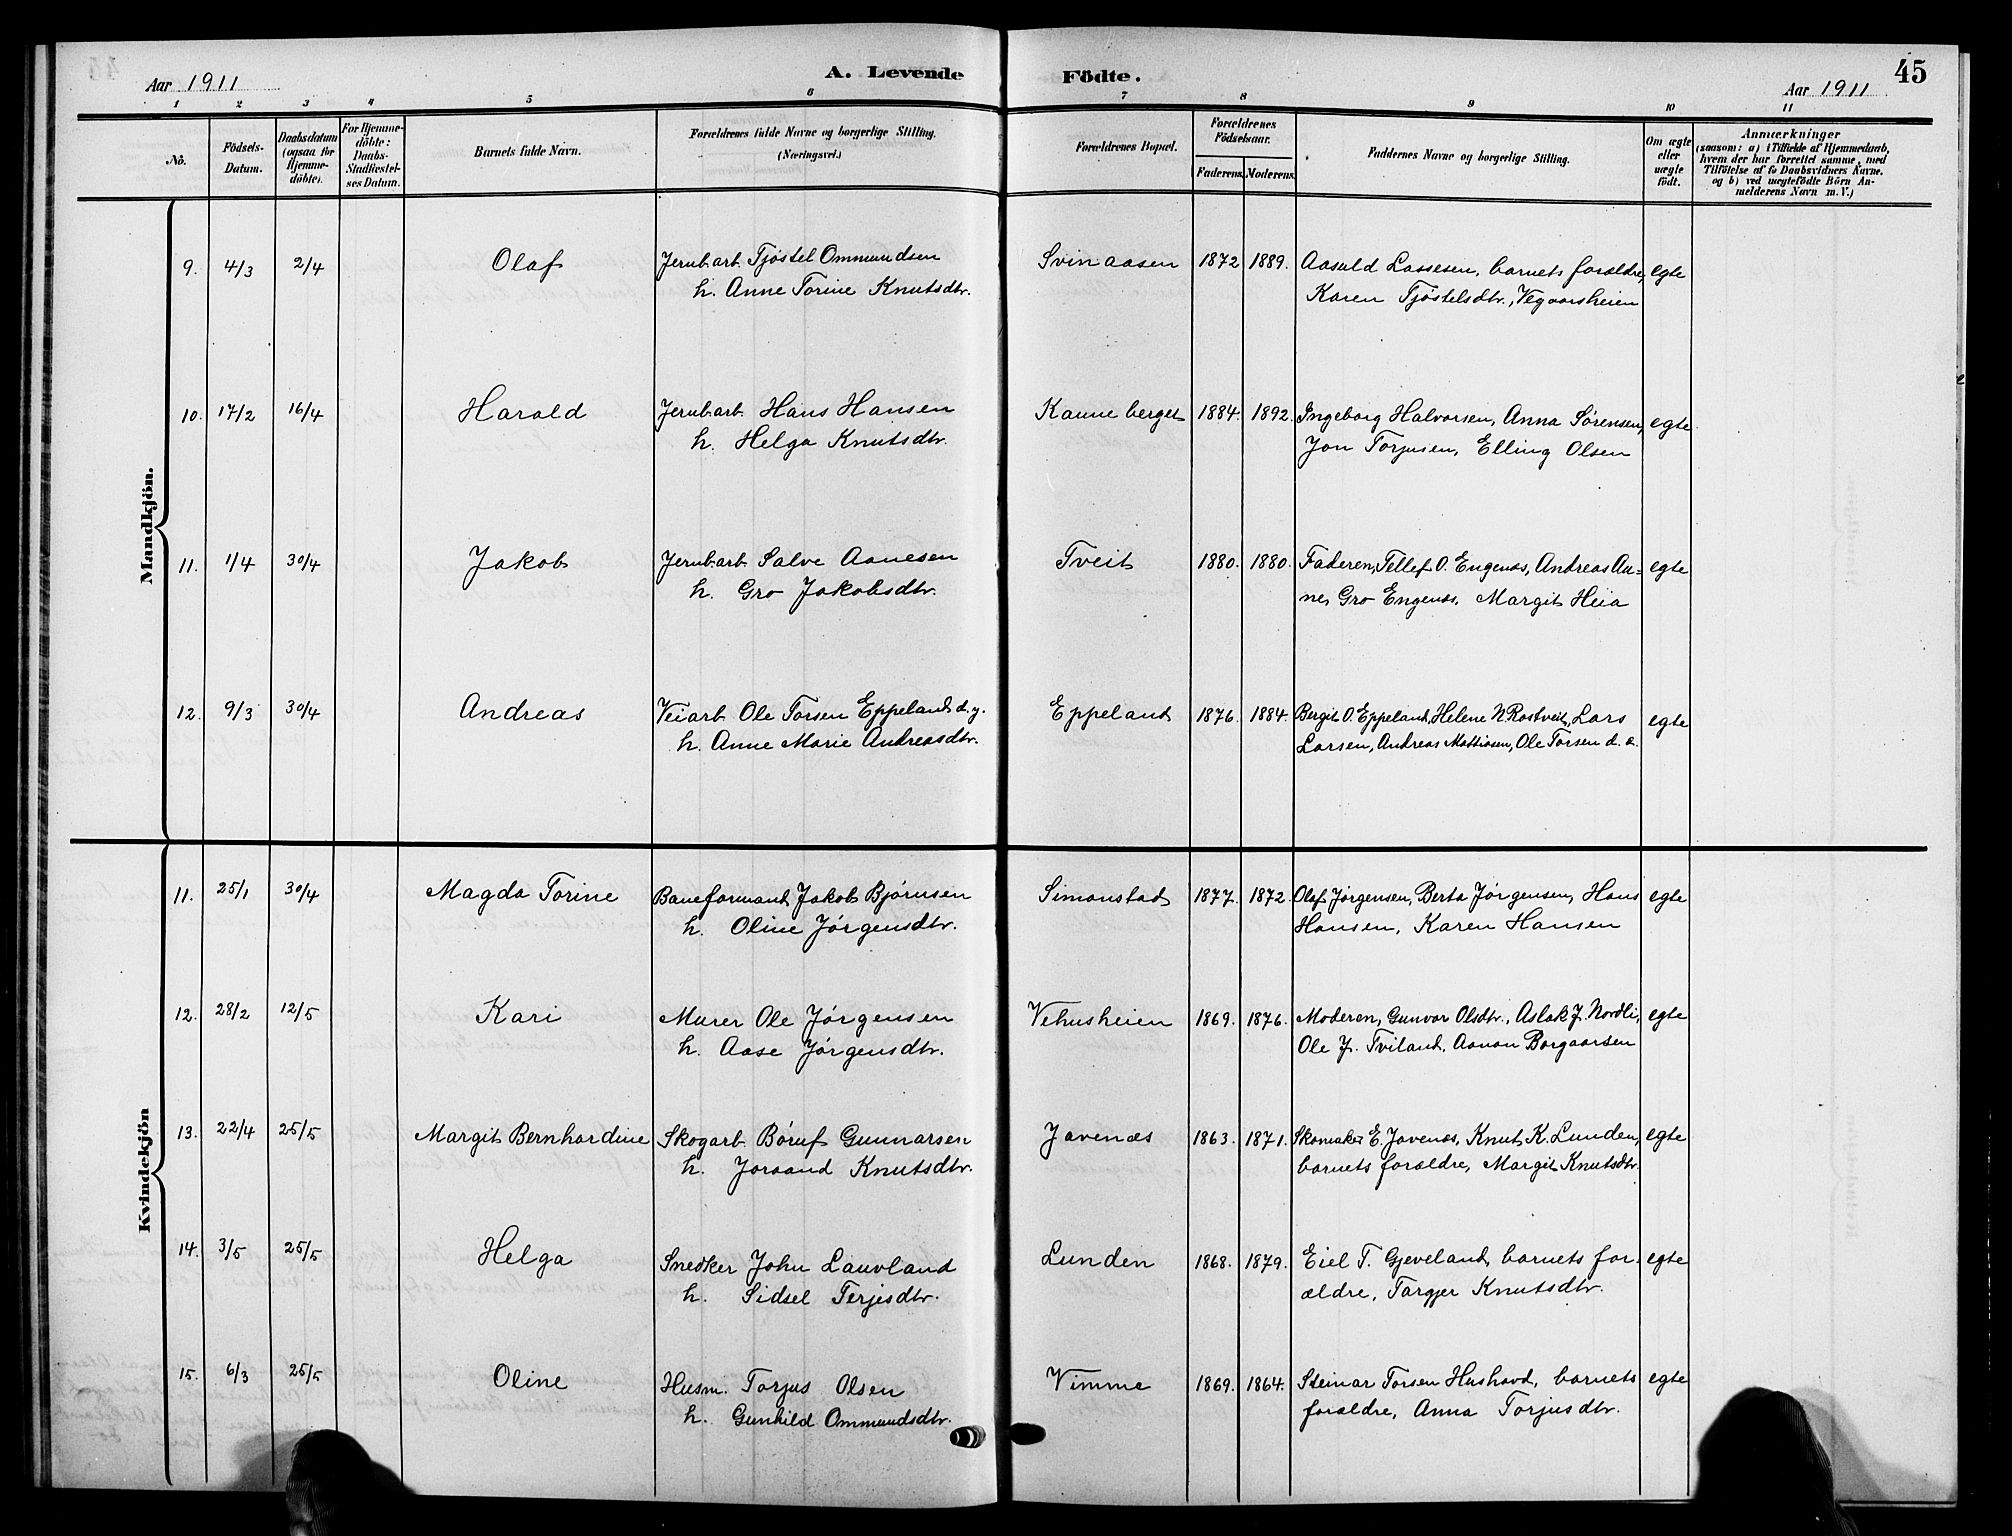 Aar 1911
A. Levende
Födte.
45
Aar 1911
1 2 3 4 5 6 7 8 9 10 11
No.
Födsels-Datum.
Daabsdatum (ogsaa for Hjemme-döbte).
For Hjemme-döbte: Daabs-Stadfæstel-ses Datum.
Barnets fulde Navn.
Forældrenes fulde Navne og borgerlige Stilling. (Næringsvei.)
Forældrenes Bopæl.
Forældrenes Födselsaar.
Faderens. Moderens.
Faddernes Navne og borgerlige Stilling.
Om ægte eller uægte födt.
Anmærkninger
(saasom: a) i Tilfælde af Hjemmedaab,
hvem der har forrettet samme, med
Tilföielse af to Daabsvidners Navne.
og b) ved uægtefödte Börn An-
melderens Navn m. V.)
Mandkjön.
9. 4/3 2/4 Olaf Jernb.arb. Tjøstel Ommundsen Svinaasen 1872 1889. Aasuld Lassesen, barnets forældre, egte
h. Anne Torine Knutsdtr. Karen Tjøstelsdtr., Vegaarsheien
10. 17/2 16/4 Harald Jernb.arb. Hans Hansen Kanneberget 1884. 1892. Ingeborg Halvorsen, Anna Sørensen, egte
h. Helga Knutsdtr. Jon Torjusen, Elling Olsen
11. 1/4 30/4 Jakob Jernb.arb. Salve Aanesen Tveit 1880. 1880. Faderen, Tellef O. Engenæs, Andreas Aa= egte
h. Gro Jakobsdtr. nes, Gro Engenæs, Margit Heia
12. 9/3 30/4 Andreas Veiarb. Ole Torsen Eppeland d.y. Eppeland 1876. 1884. Bergit O. Eppeland, Helene N. Rostveit, Lars egte
h. Anne Marie Andreasdtr. Larsen, Andreas Mattiasen, Ole Torsen d. æ.
Kvindekjön
11. 25/1 30/4 Magda Torine Baneformand Jakob Bjørnsen Simonstad 1877. 1872. Olaf Jørgensen, Berta Jørgensen, Hans egte
h. Oline Jørgensdtr. Hansen, Karen Hansen
12. 28/2 12/5 Kari Murer Ole Jørgensen Vehusheien 1869. 1876. Moderen, Gunvor Olsdtr., Aslak J. Nordli, egte
h. Aase Jørgensdtr. Ole J. Tviland, Aanon Borgaarsen
13. 22/4 25/5 Margit Bernhardine Skogarb. Børuf Gunnarsen Jovenæs 1863. 1871. Skomaker E. Jovenæs, Knut K. Lunden, egte
h. Joraand Knutsdtr. barnets forældre, Margit Knutsdtr.
14. 3/5 25/5 Helga Snedker John Lauvland Lunden 1868. 1879. Eiel T. Gjeveland, barnets for- egte
h. Sidsel Terjesdtr. ældre, Targjer Knutsdtr.
15. 6/3 25/5 Oline Husm. Torjus Olsen Vimme 1869. 1864. Steinar Torsen Hushovd, barnets egte
h. Gunhild Ommundsdtr. forældre, Anna Torjusdtr.